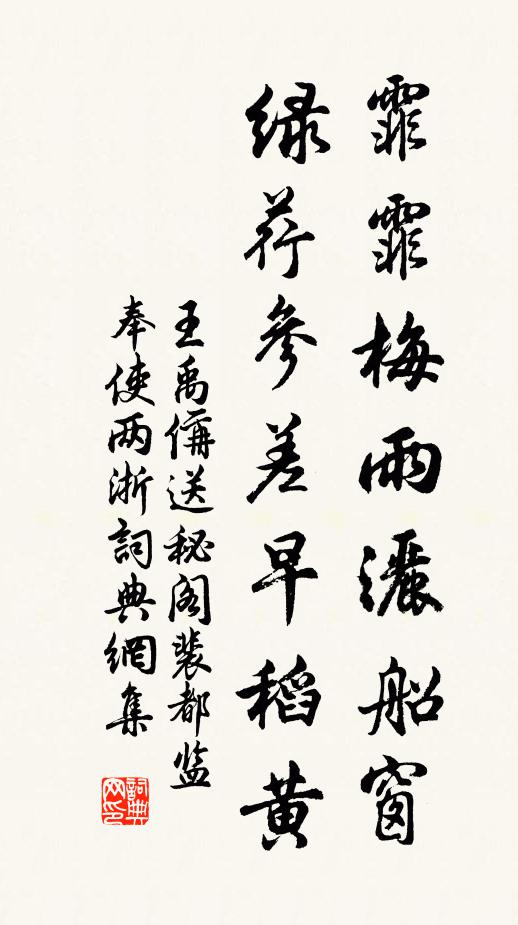 霏霏梅雨灑船窗
綠荇參差早稻黃
王禹偁送秘阁裴都监
奉使两浙詞典網集
詞典网印